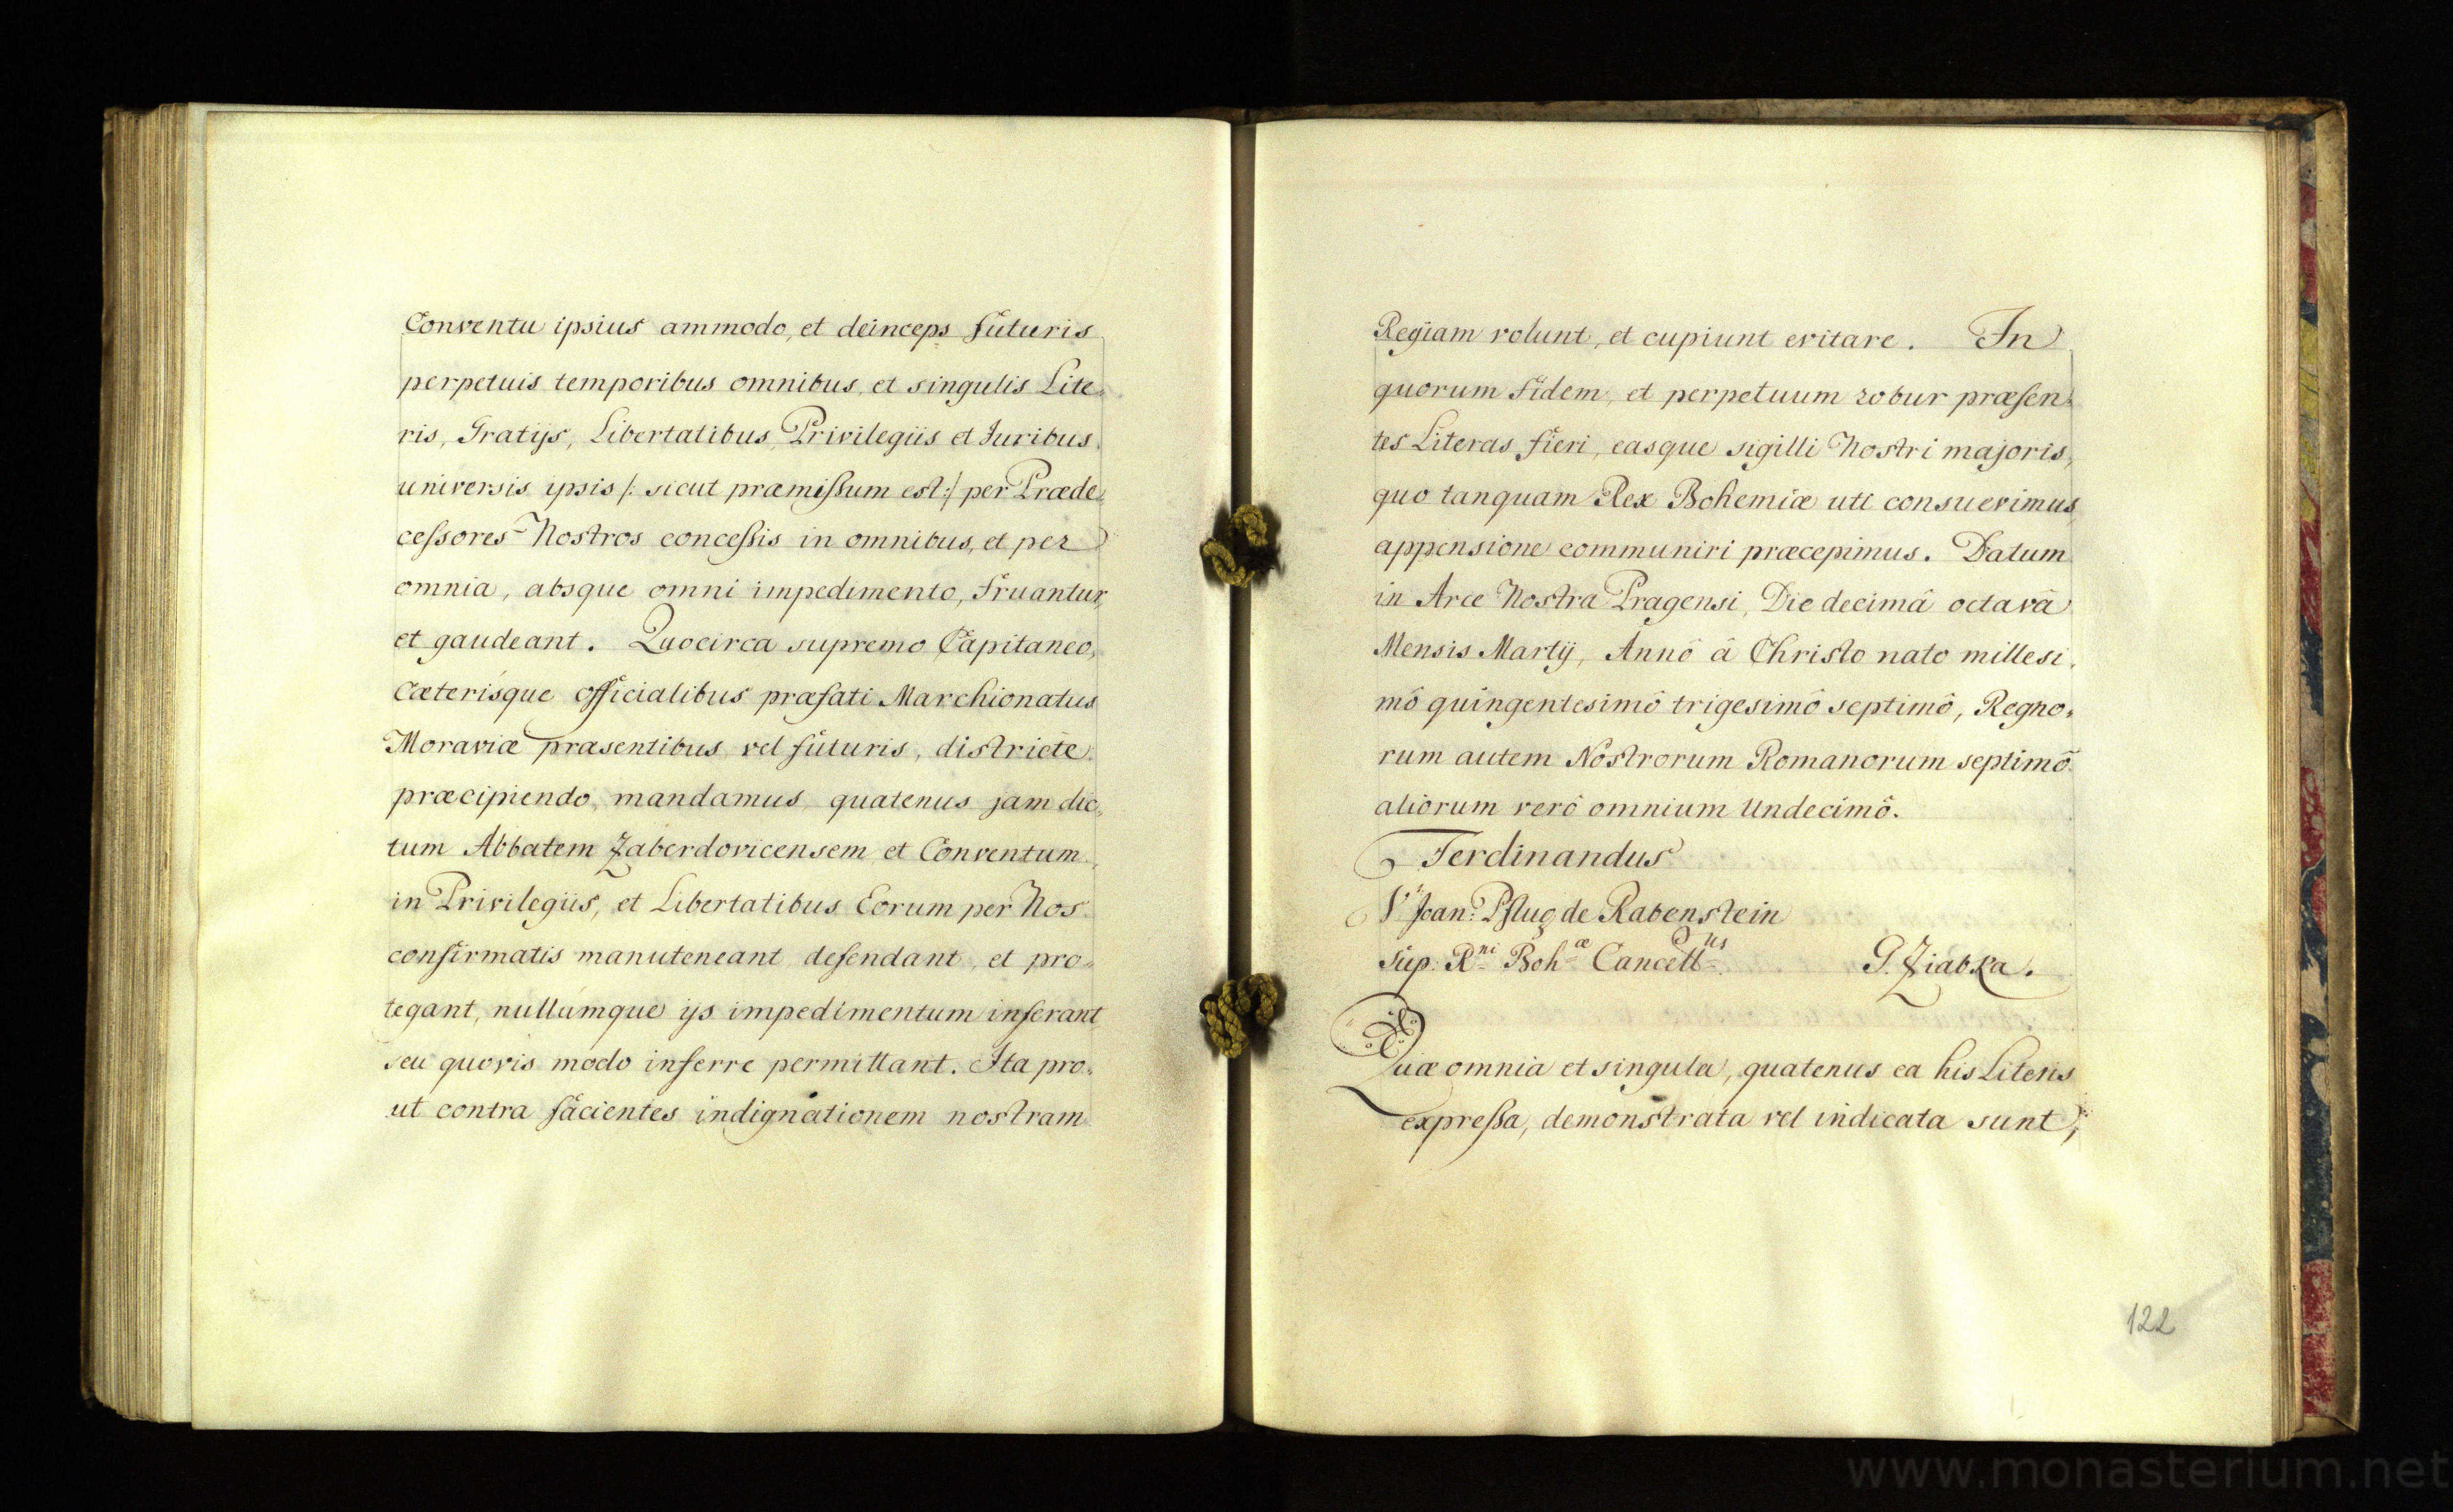 Conventu ipsius ammodo, et deinceps futuris
perpetuis temporibus omnibus, et singulis Lite=
ris, Gratijs, Libertatibus, Privilegiis et Juribus
universis ipsis /: sicut præmißum est :/ per Præde=
ceßores Nostros conceßis in omnibus, et per
omnia, absque omni impedimento, fruantur,
et gaudeant. Quocirca supremo Capitaneo,
Cæterisque officialibus præfati Marchionatus
Moraviæ præsentibus vel futuris, districte
præcipiendo, mandamus, quatenus jam dic=
tum Abbatem Zaberdovicensem et Conventum
in Privilegiis, et Libertatibus Eorum per Nos
confirmatis manuteneant defendant, et pro=
tegant, nullumque ijs impedimentum inferant
seu quovis modo inferre permittant. Ita pro=
ut contra facientes indignationem nostram
Regiam volunt, et cupiunt evitare. In
quorum fidem, et perpetuum robur præsen=
tes Literas fieri, easque sigilli Nostri majoris,
quo tanquam Rex Bohemiæ uti consuevimus
appensione communiri præcepimus. Datum
in Arce Nostra Pragensi, Die decimâ octavâ
Mensis Martij, Annô â Christo nato millesi=
mô quingentesimô trigesimô septimô, Regno=
rum autem Nostrorum Romanorum septimô
aliorum verô omnium Undecimô.
Ferdinandus
Vt Joan: Pflug de Rabenstein
Sup: Rni Bohæ Cancellus G. Ziabka.
Quæ omnia et singula, quatenus ea his Literis
expreßa, demonstrata vel indicata sunt,
122
www.monasterium.net